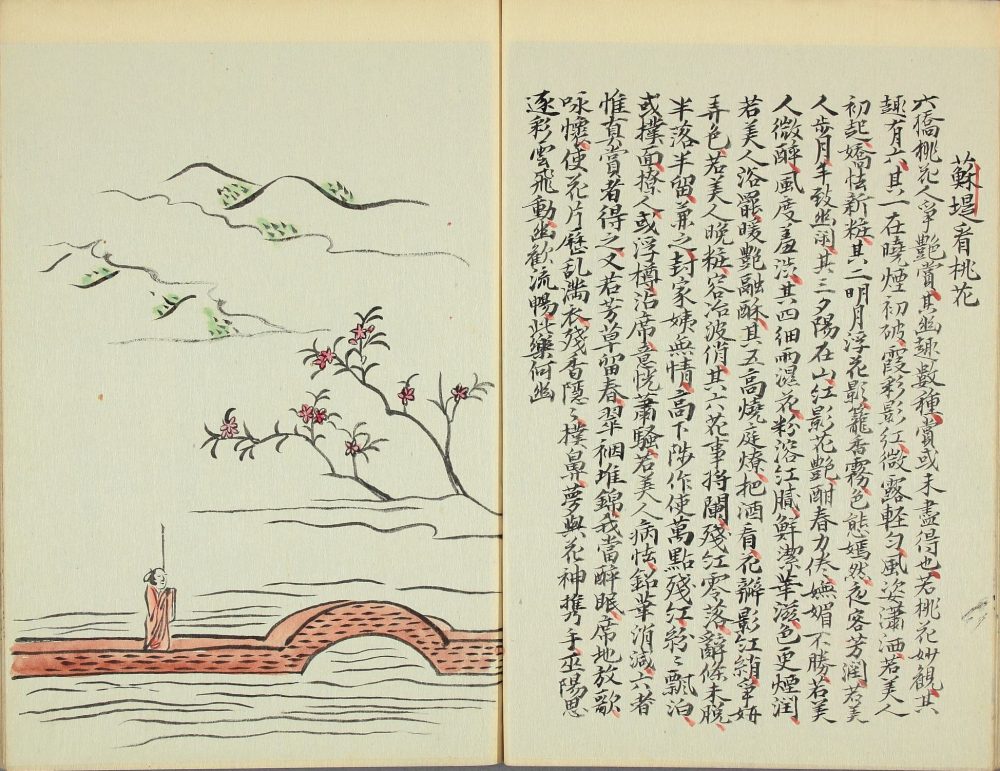 蘇堤看桃花
六橋桃花人爭艷賞其幽趣數種賞或未盡得也若桃花妙觀其
趣有六其一在曉煙初破霞彩影紅微露輕勻風姿瀟洒若美人
初起嬌怯新粧其二明月浮花影籠香霧色態嫣然夜容芳潤若美
人步月丰致幽閑其三夕陽在山紅影花艷酣春力倦嫵媚不勝若美
人微醉風度羞澁其四細雨濕花粉溶紅膩鮮潔華滋色更煙潤
若美人浴罷暖艷融酥其五高燒庭燎把酒看花瓣影紅綃爭妍
弄色若美人晚粧容冶波俏其六花事將闌殘紅零落辭條未脫
半落半留兼之封家姨無情高下陟作使萬點殘紅紛〻飄泊
或撲面撩人或浮樽沾席意恍蕭騷若美人病怯鉛華消減六者
惟真賞者得之又若芳草留春翠裀堆錦我當醉眠席地放歌
咏懷使花片歷乱滿衣殘香隱〻撲鼻夢與花神携手巫陽思
逐彩雲飛動幽歡流暢此樂何幽